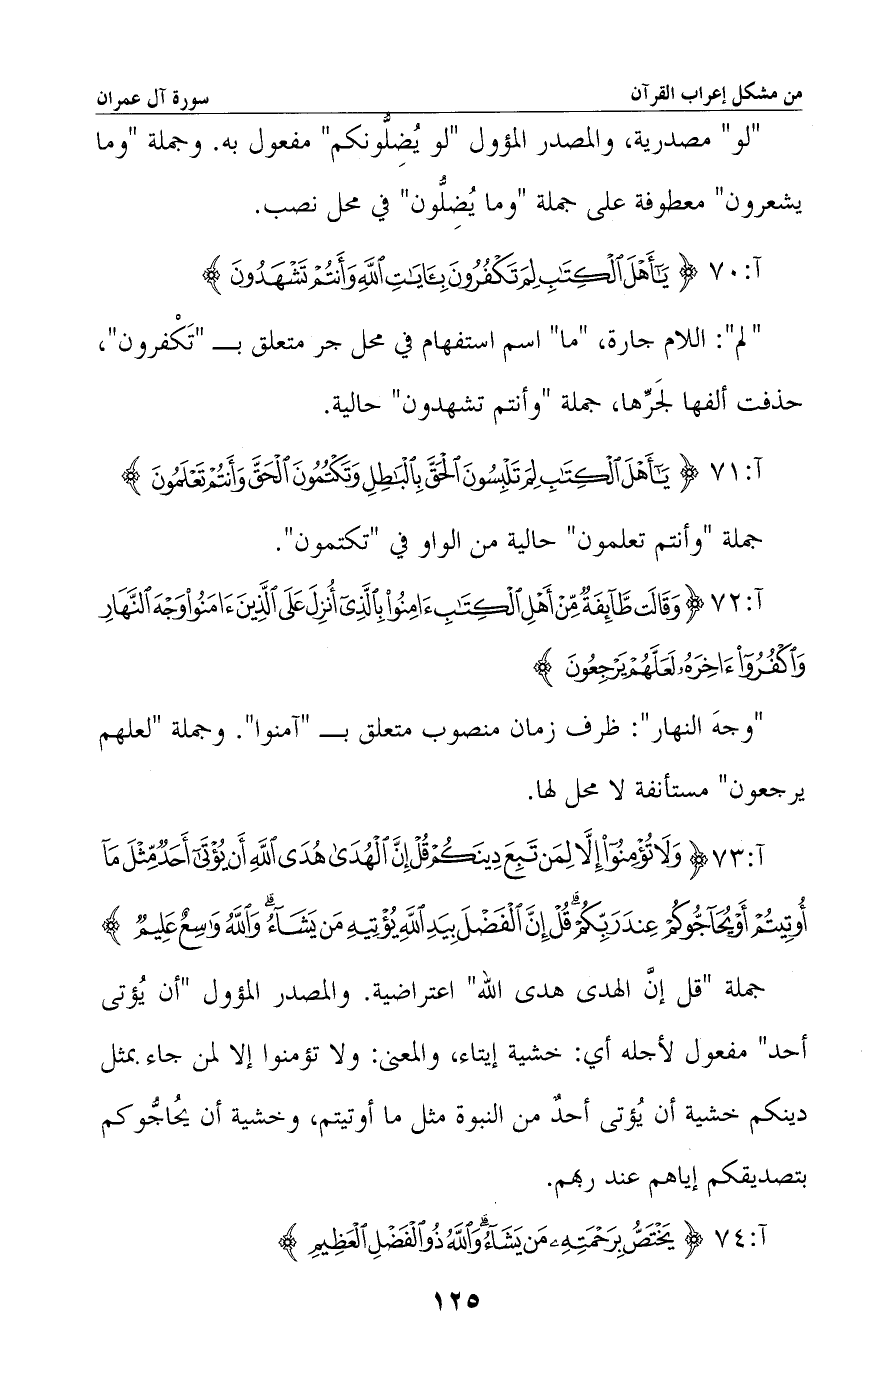 من مشكل إعراب القرآن سورة آل عمران
"لو" مصدرية، والمصدر المؤول "لو يُضِلُّونكم" مفعول به. وجملة "وما
يشعرون" معطوفة على جملة "وما يُضِلُّون" في محل نصب.
آ:٧٠ ﴿ يَـٰٓأَهْلَ ٱلْكِتَـٰبِ لِمَ تَكْفُرُونَ بِـَٔايَـٰتِ ٱللَّهِ وَأَنتُمْ تَشْهَدُونَ ﴾
"لم": اللام جارة، "ما" اسم استفهام في محل جر متعلق بـ "تَكْفرون"،
حذفت ألفها لجَرِّها، جملة "وأنتم تشهدون" حالية.
آ:٧١ ﴿ يَـٰٓأَهْلَ ٱلْكِتَـٰبِ لِمَ تَلْبِسُونَ ٱلْحَقَّ بِٱلْبَـٰطِلِ وَتَكْتُمُونَ ٱلْحَقَّ وَأَنتُمْ تَعْلَمُونَ ﴾
جملة "وأنتم تعلمون" حالية من الواو في "تكتمون".
آ:٧٢ ﴿ وَقَالَت طَّآئِفَةٌ مِّنْ أَهْلِ ٱلْكِتَـٰبِ ءَامِنُوا۟ بِٱلَّذِىٓ أُنزِلَ عَلَى ٱلَّذِينَ ءَامَنُوا۟ وَجْهَ ٱلنَّهَارِ
وَٱكْفُرُوٓا۟ ءَاخِرَهُۥ لَعَلَّهُمْ يَرْجِعُونَ ﴾
"وجهَ النهار": ظرف زمان منصوب متعلق بـ "آمنوا". وجملة "لعلهم
يرجعون" مستأنفة لا محل لها.
آ:٧٣ ﴿ وَلَا تُؤْمِنُوٓا۟ إِلَّا لِمَن تَبِعَ دِينَكُمْ قُلْ إِنَّ ٱلْهُدَىٰ هُدَى ٱللَّهِ أَن يُؤْتَىٰٓ أَحَدٌ مِّثْلَ مَآ
أُوتِيتُمْ أَوْ يُحَآجُّوكُمْ عِندَ رَبِّكُمْ ۗ قُلْ إِنَّ ٱلْفَضْلَ بِيَدِ ٱللَّهِ يُؤْتِيهِ مَن يَشَآءُ ۗ وَٱللَّهُ وَٰسِعٌ عَلِيمٌ ﴾
جملة "قل إنَّ الهدى هدى الله" اعتراضية. والمصدر المؤول "أن يُؤتى
أحد" مفعول لأجله أي: خشية إيتاء، والمعنى: ولا تؤمنوا إلا لمن جاء بمثل
دينكم خشية أن يُؤتى أحدٌ من النبوة مثل ما أوتيتم، وخشية أن يُحاجُّوكم
بتصديقكم إياهم عند ربهم.
آ:٧٤ ﴿ يَخْتَصُّ بِرَحْمَتِهِۦ مَن يَشَآءُ ۗ وَٱللَّهُ ذُو ٱلْفَضْلِ ٱلْعَظِيمِ ﴾
١٢٥